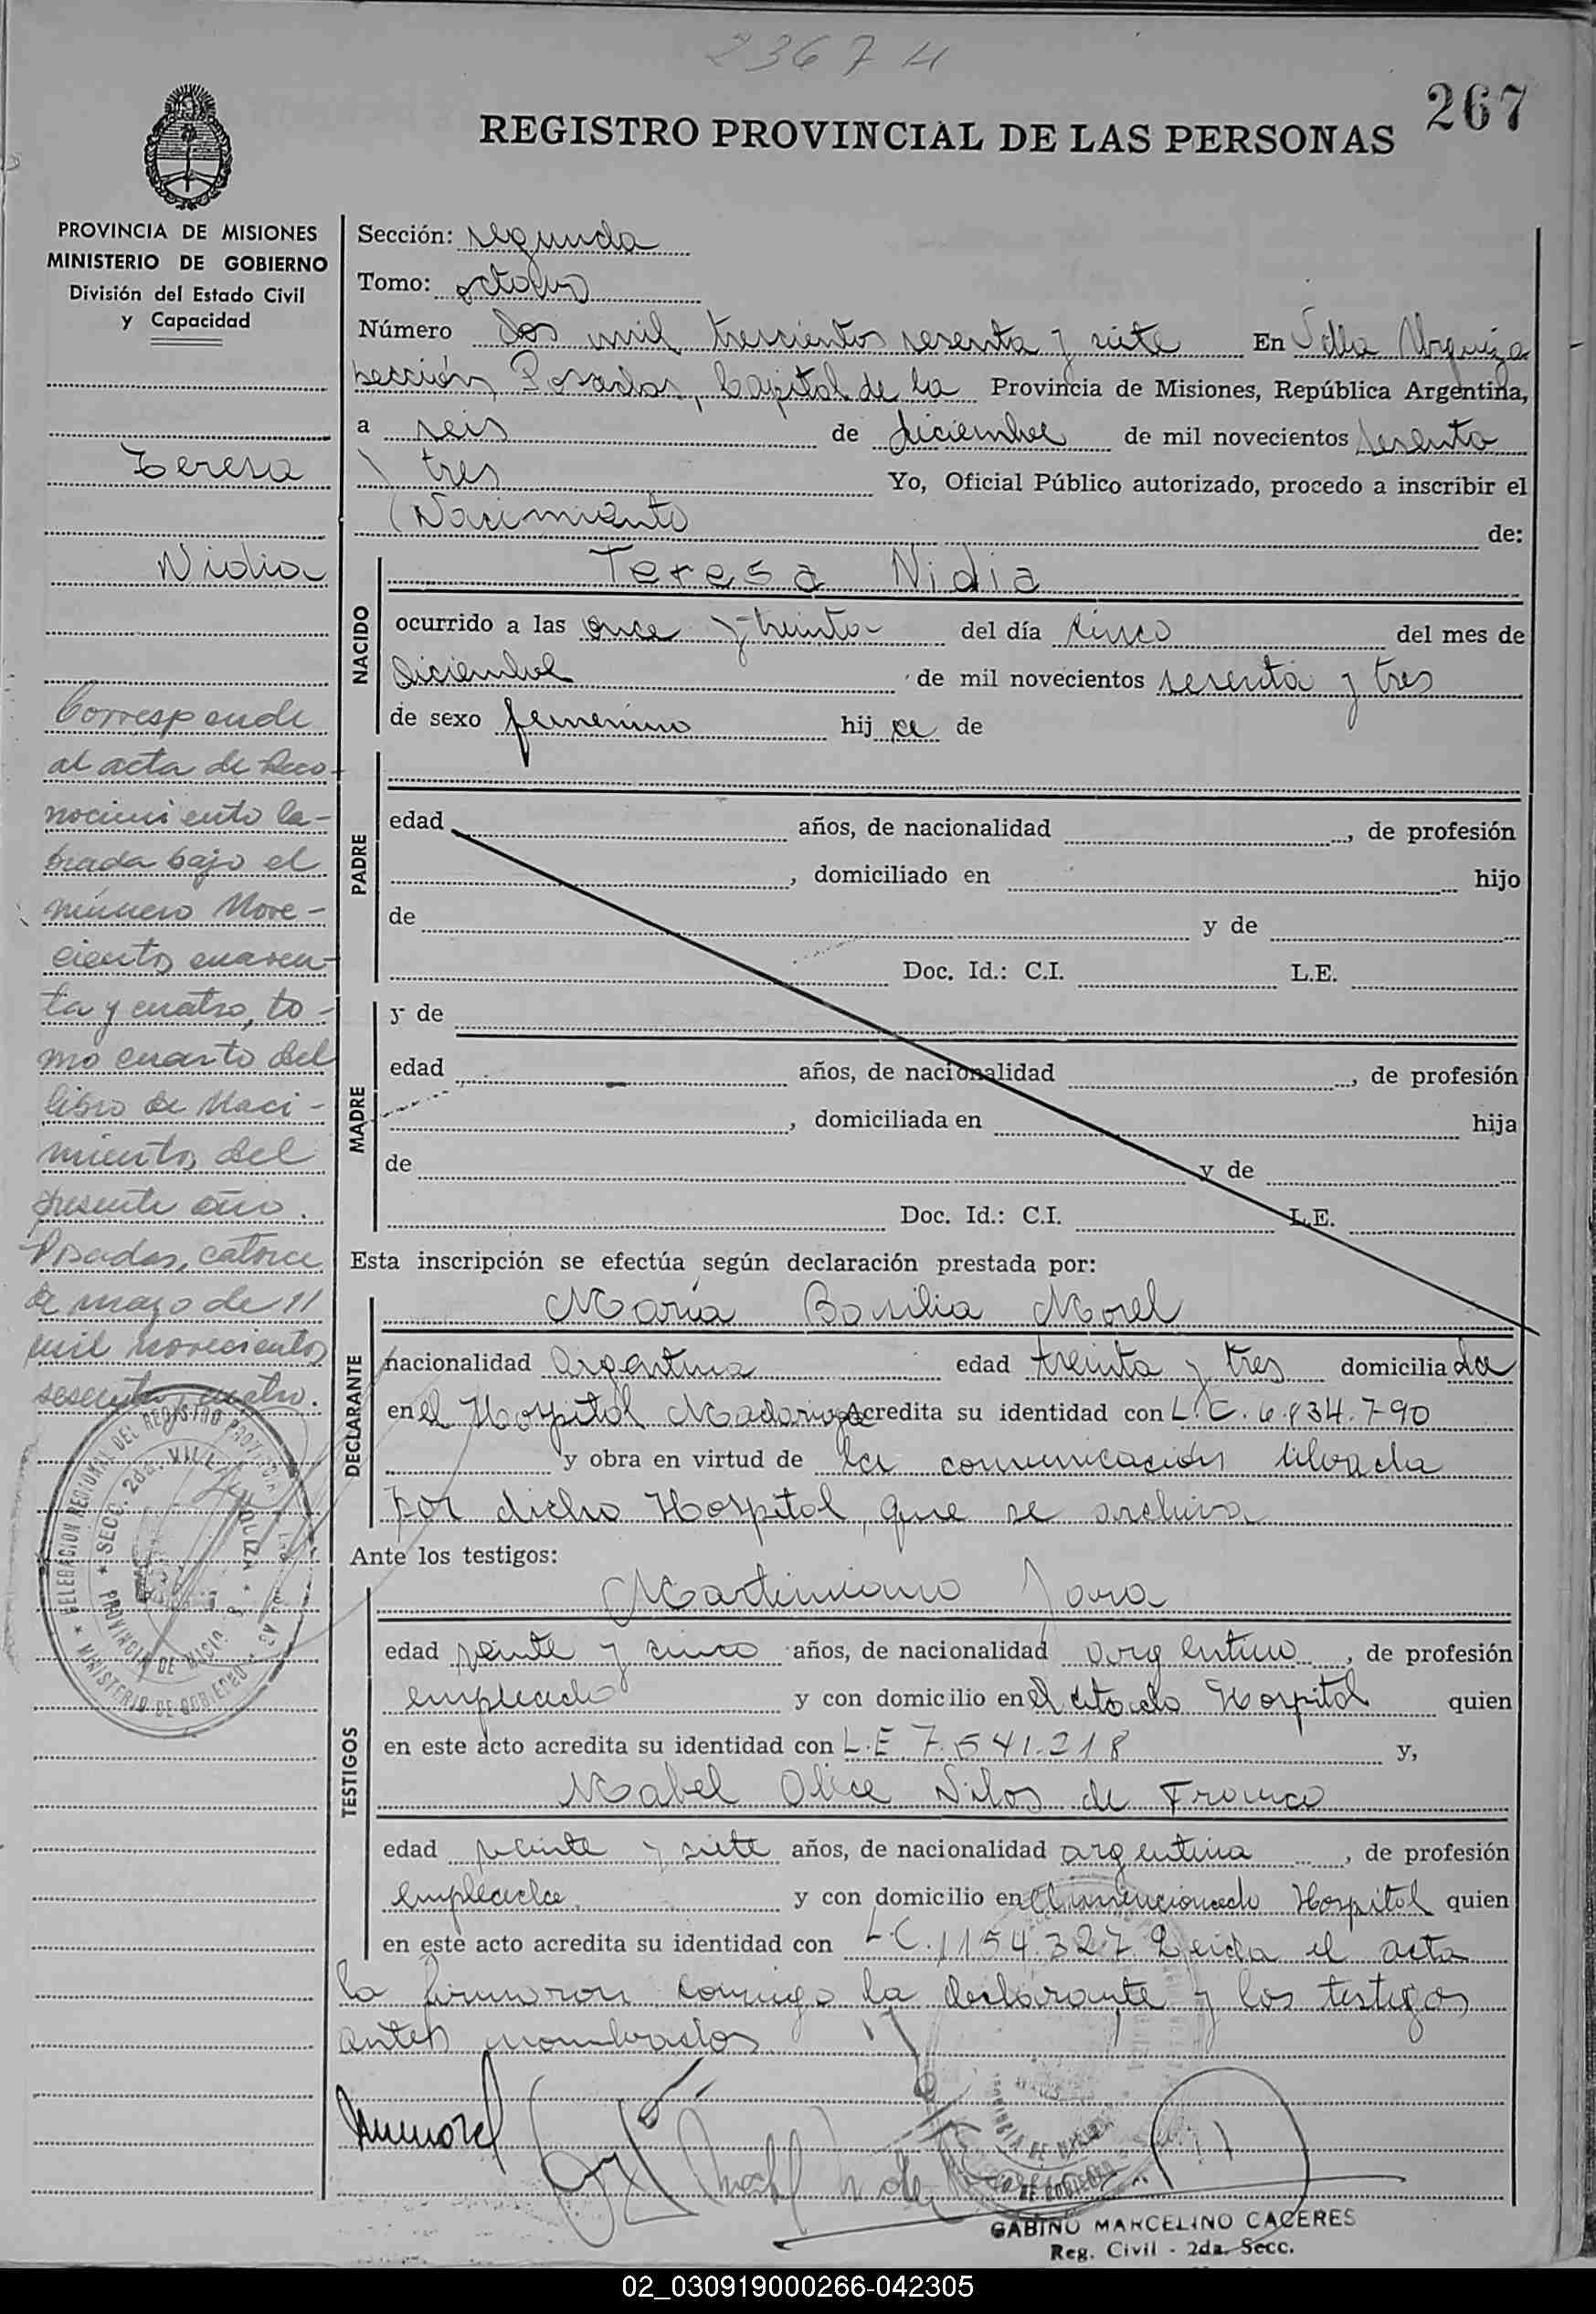 2367 H
267
REGISTRO PROVINCIAL DE LAS PERSONAS
PROVINCIA DE MISIONES
MINISTERIO DE GOBIERNO
División del Estado Civil
y Capacidad
Teresa
Nidia
Corresponde
al acta de Reco-
nocimiento la-
brada bajo el
número Nove-
cientos cuaren-
ta y cuatro, to-
mo cuarto del
libro de Naci-
mientos del
presente año.
Posadas, catorce
de mazo de
mil novecientos
sesenta y cuatro.
DELEGACION REGIONAL DEL REGISTRO PROVINCIAL DE LAS PERSONAS
SECC. 2da. VILLA URQUIZA
PROVINCIA DE MISIONES
MINISTERIO DE GOBIERNO
Sección: segunda
Tomo: octavo
Número dos mil trescientos sesenta y siete En Villa Urquiza
Sección, Posadas, Capital de la Provincia de Misiones, República Argentina,
a seis de diciembre de mil novecientos sesenta
y tres Yo, Oficial Público autorizado, procedo a inscribir el
Nacimiento de:
NACIDO
Teresa Nidia
ocurrido a las once y treinta del día cinco del mes de
diciembre de mil novecientos sesenta y tres
de sexo femenino hija de
PADRE
edad años, de nacionalidad , de profesión
, domiciliado en hijo
de y de
Doc. Id.: C.I. L.E.
MADRE
y de
edad años, de nacionalidad , de profesión
, domiciliada en hija
de y de
Doc. Id.: C.I. L.E.
Esta inscripción se efectúa según declaración prestada por:
DECLARANTE
María Basilia Morel
nacionalidad argentina edad treinta y tres domiciliada
en el Hospital Madariaga acredita su identidad con L.C. 6.834.790
y obra en virtud de la comunicación librada
por dicho Hospital, que se archiva
Ante los testigos:
TESTIGOS
Martiniano Jara
edad veinte y cinco años, de nacionalidad argentino, de profesión
empleado y con domicilio en el citado Hospital quien
en este acto acredita su identidad con L.E. 7.541.218 y,
Mabel Olice Silos de Franco
edad veinte y siete años, de nacionalidad argentina, de profesión
empleada y con domicilio en el mencionado Hospital quien
en este acto acredita su identidad con L.C. 1154.327 Leida el acta
la firmaron conmigo la declarante y los testigos
antes nombrados.
GABINO MARCELINO CACERES
Reg. Civil - 2da. Secc.
02_030919000266-042305